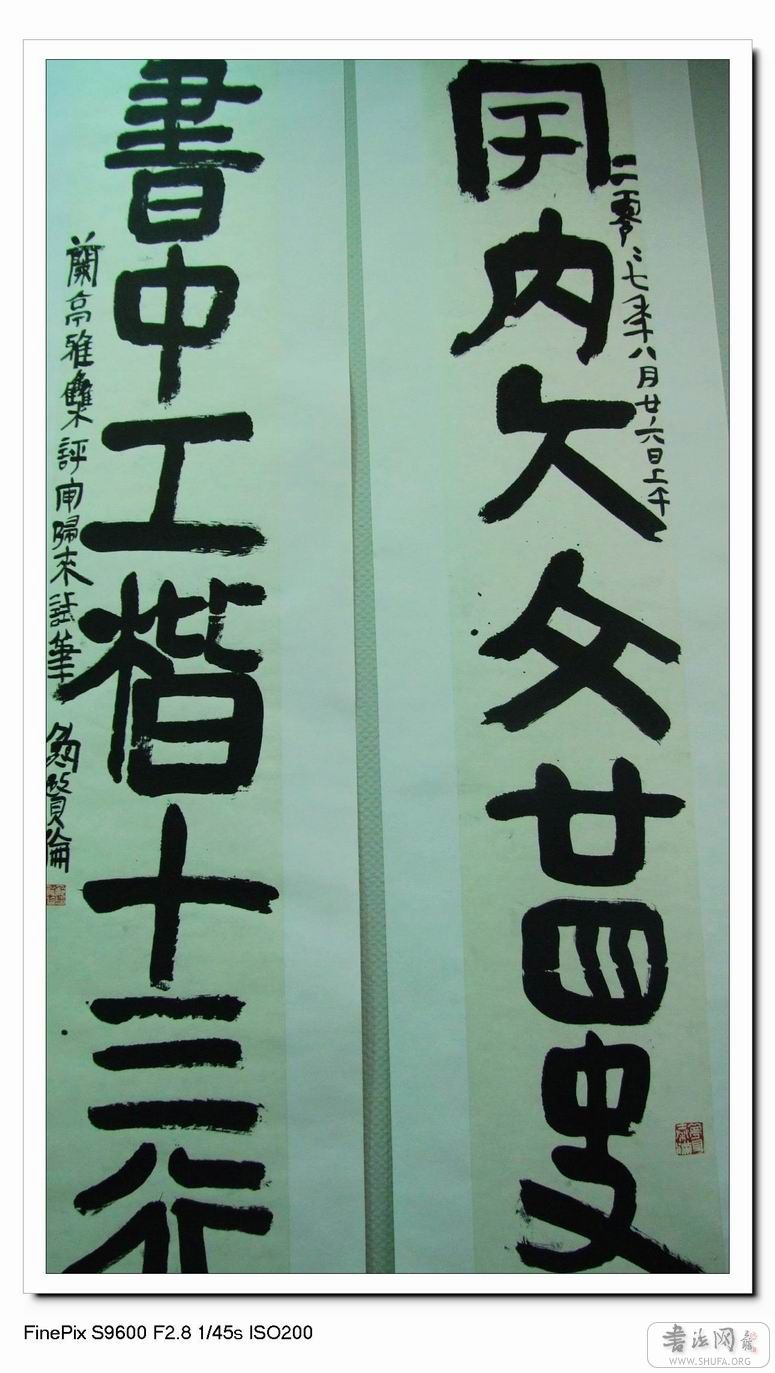 二零〻七年八月廿六日上午
宇内大文廿四史
書中工楷十三行
蘭亭雅集評审歸來試筆 鮑賢倫
FinePix S9600 F2.8 1/45s ISO200
书法网
WWW.SHUFA.ORG